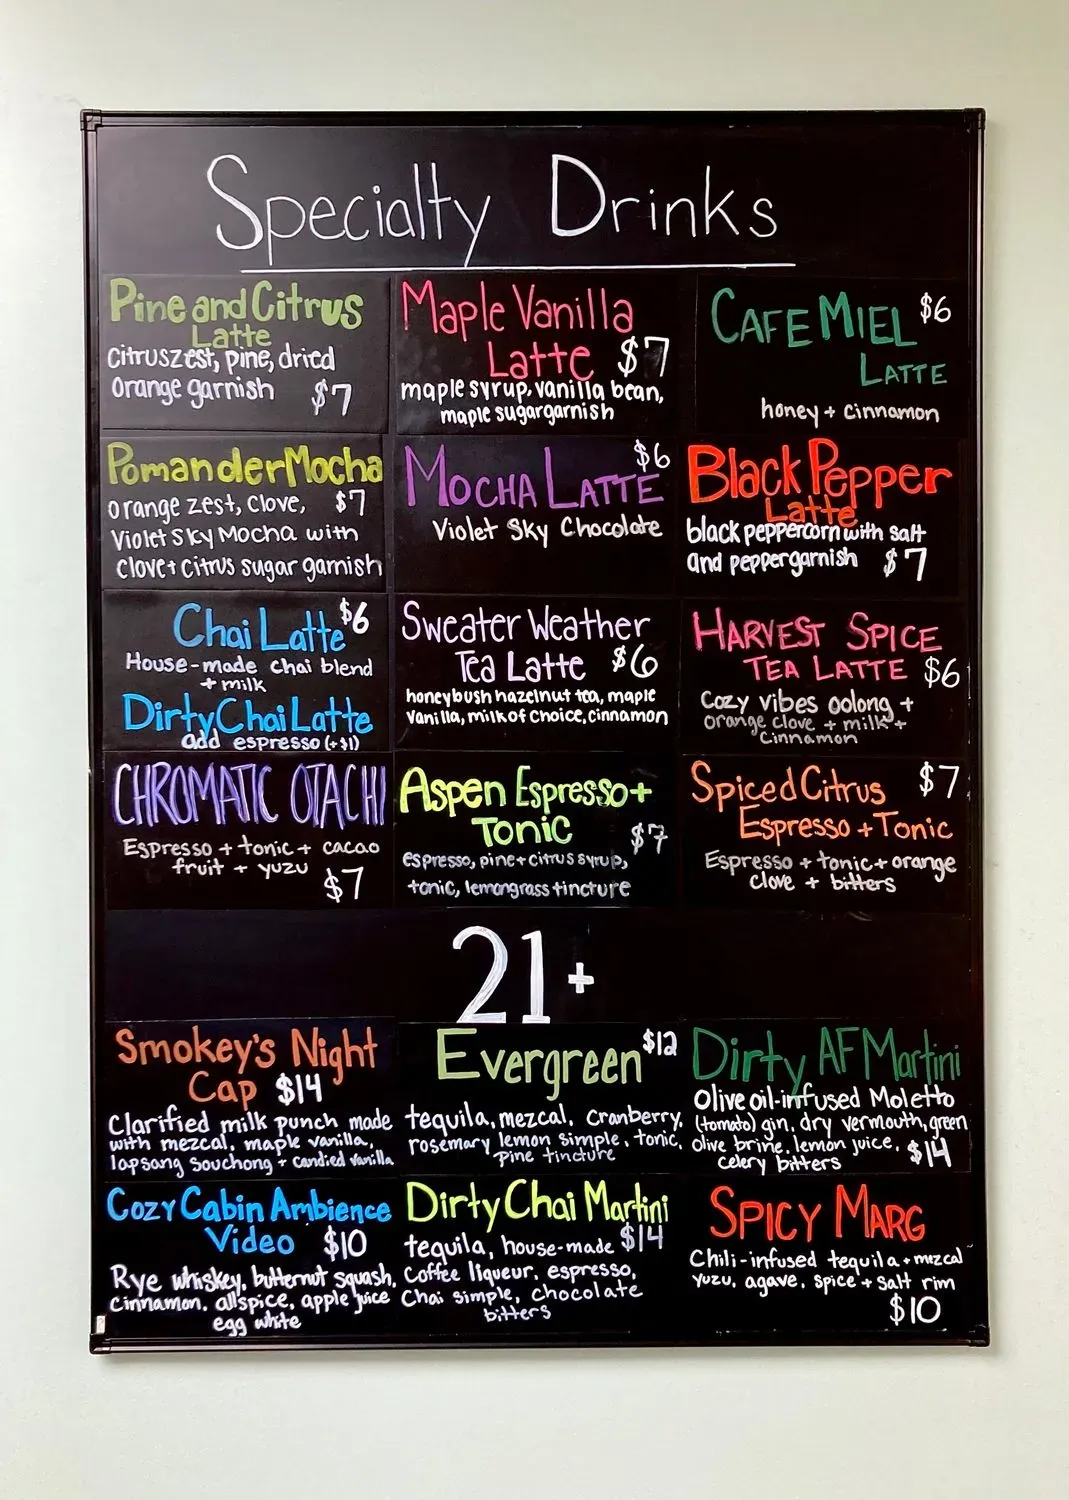 Specialty Drinks
Pine and Citrus
Latte
citrus zest, pine, dried
orange garnish $7
Maple Vanilla
Latte $7
maple syrup, vanilla bean,
maple sugar garnish
CAFE MIEL $6
LATTE
honey + cinnamon
Pomander Mocha
orange zest, clove, $7
Violet Sky Mocha with
clove + citrus sugar garnish
$6
MOCHA LATTE
Violet Sky Chocolate
Black Pepper
Latte
black peppercorn with salt
and pepper garnish $7
Chai Latte $6
House-made chai blend
+ milk
Dirty Chai Latte
add espresso (+$1)
Sweater Weather
Tea Latte $6
honeybush hazelnut tea, maple
vanilla, milk of choice, cinnamon
HARVEST SPICE
TEA LATTE $6
Cozy vibes oolong +
orange clove + milk +
cinnamon
CHROMATIC OTACHI
Espresso + tonic + cacao
fruit + yuzu
$7
Aspen Espresso +
Tonic $7
espresso, pine + citrus syrup,
tonic, lemongrass tincture
Spiced Citrus $7
Espresso + Tonic
Espresso + tonic + orange
clove + bitters
21+
Smokey's Night
Cap $14
Clarified milk punch made
with mezcal, maple vanilla,
lapsang souchong + candied vanilla
Evergreen $12
tequila, mezcal, cranberry,
rosemary lemon simple, tonic,
pine tincture
Dirty AF Martini
Olive oil-infused Moletto
(tomato) gin, dry vermouth, green
olive brine, lemon juice, $14
celery bitters
Cozy Cabin Ambience
Video $10
Rye whiskey, butternut squash,
cinnamon, allspice, apple juice
egg white
Dirty Chai Martini
tequila, house-made $14
Coffee liqueur, espresso,
Chai simple, chocolate
bitters
SPICY MARG
Chili-infused tequila + mezcal
yuzu, agave, spice + salt rim
$10